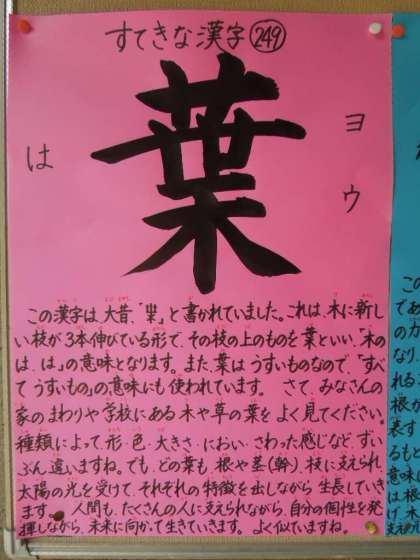 すてきな漢字 249
葉
は
ヨウ
この漢字は大昔、「」と書かれていました。これは、木に新し
い枝が3本伸びている形で、その枝の上のものを葉といい、「木の
は、は」の意味となります。また、葉はうすいものなので、「すべ
てうすいもの」の意味にも使われています。 さて、みなさんの
家のまわりや学校にある木や草の葉をよく見てください。
種類によって形・色・大きさ・におい・さわった感じなど、ずい
ぶん違いますね。でも、どの葉も、根や茎(幹)、枝に支えられ、
太陽の光を受けて、それぞれの特徴を出しながら生長していき
ます。 人間も、たくさんの人に支えられながら、自分の個性を発
揮しながら、未来に向かって生きていきます。よく似ていますね。